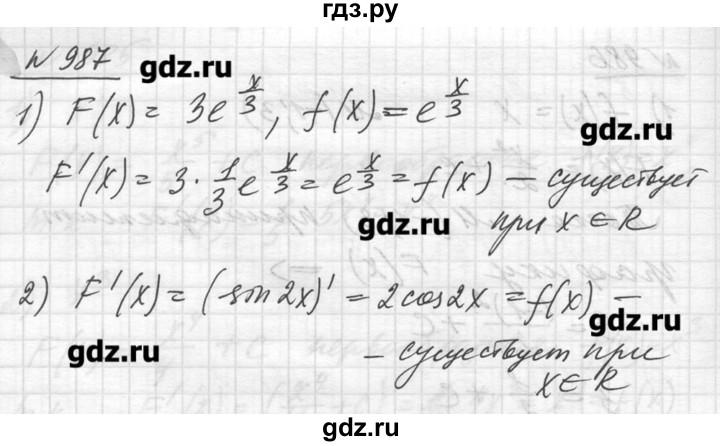 гдз.ру
№ 987
gdz.ru
1) F(x) = 3e^{x/3}, f(x) = e^{x/3}
gdz.ru
F'(x) = 3 · 1/3 e^{x/3} = e^{x/3} = f(x) – существует
gdz.ru
при x ∈ R
2) F'(x) = (sin2x)' = 2cos2x = f(x) –
gdz.ru
gdz.ru
– существует при
x ∈ R